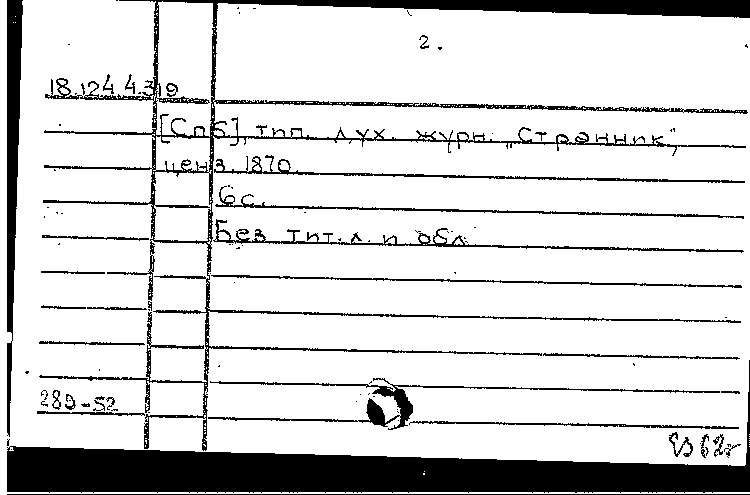 2.
18.124.4.319.
[Спб], тип. дух. журн. „Странник",
ценз. 1870.
6 с.
Без тит. л. и обл.
289-52